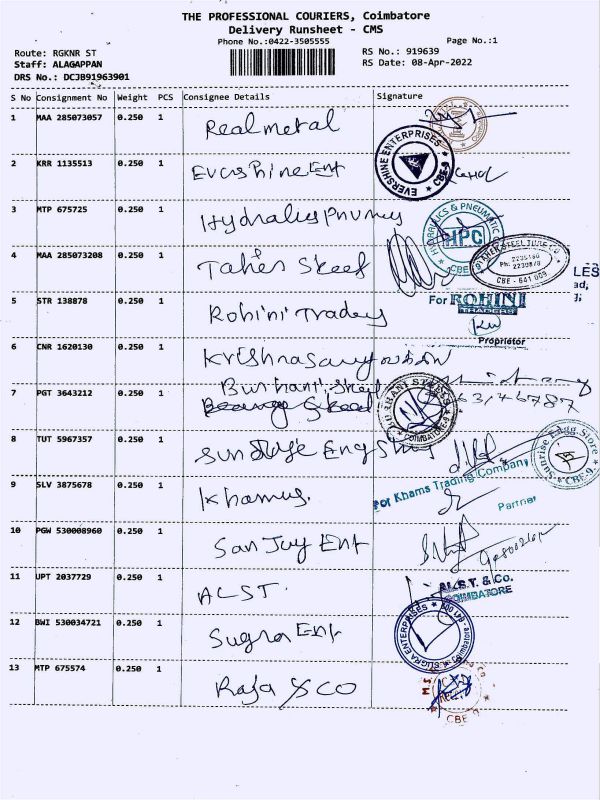 THE PROFESSIONAL COURIERS, Coimbatore
Delivery Runsheet - CMS
Phone No.:0422-3505555 Page No.:1
Route: RGKNR ST RS No.: 919639
Staff: ALAGAPPAN RS Date: 08-Apr-2022
DRS No.: DCJB91963901
S No Consignment No Weight PCS Consignee Details Signature
1 MAA 285073057 0.250 1 Realmetal
EVERSHINE ENTERPRISES CBE-9
2 KRR 1135513 0.250 1 Evershine Ent
3 MTP 675725 0.250 1 Hydralics
HYDRAULICS & PNEUMATIC HPC CBE
4 MAA 285073208 0.250 1 Taher Steel
TAHER STEEL TUBE CO
CBE - 641 009
LES
ad,
For ROHINI TRADERS
5 STR 138878 0.250 1 Rohini Traders
Proprietor
6 CNR 1620130 0.250 1
Burhani Steel
7 PGT 3643212 0.250 1
BURHANI STEELS COIMBATORE-9
8 TUT 5967357 0.250 1
Sunrise Engg Store CBE-9
For Khams Trading Company
9 SLV 3875678 0.250 1 Khamus.
Partner
10 PGW 530008960 0.250 1 Sanjay Ent
A.L.S.T. & Co.
COIMBATORE
11 UPT 2037729 0.250 1 ALST.
12 BWI 530034721 0.250 1 Sugra Ent
SUGRA ENTERPRISES
13 MTP 675574 0.250 1 Raja & CO
CBE-9